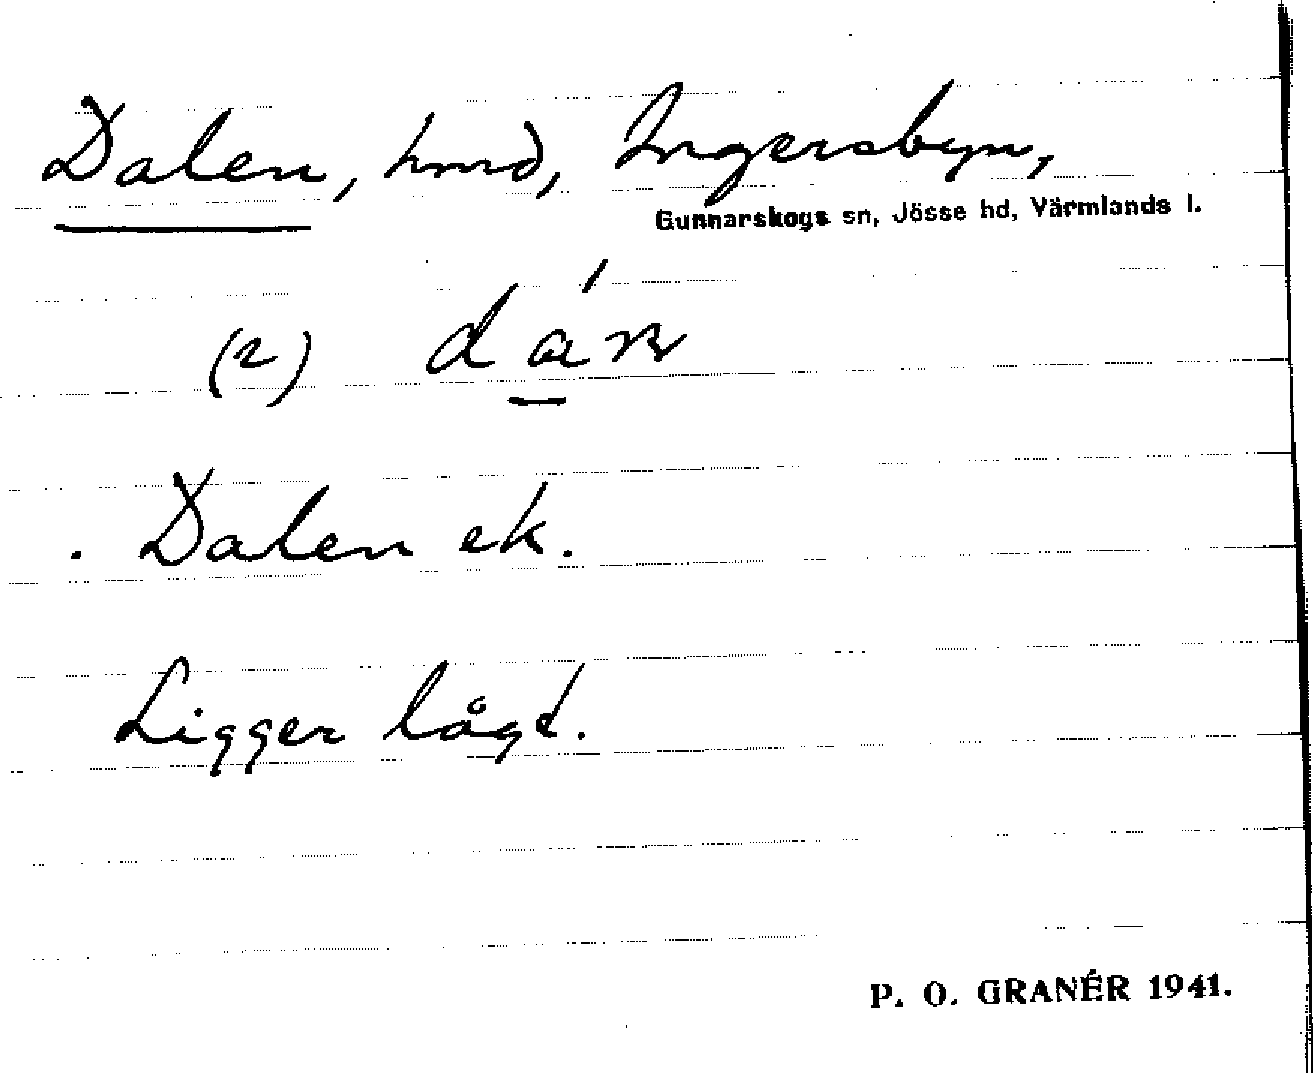 Dalen, hmd, Ingersbyn,
Gunnarskogs sn, Jösse hd, Värmlands l.
(2)
Dalen ek.
Ligger lågt.
P. O. GRANÉR 1941.